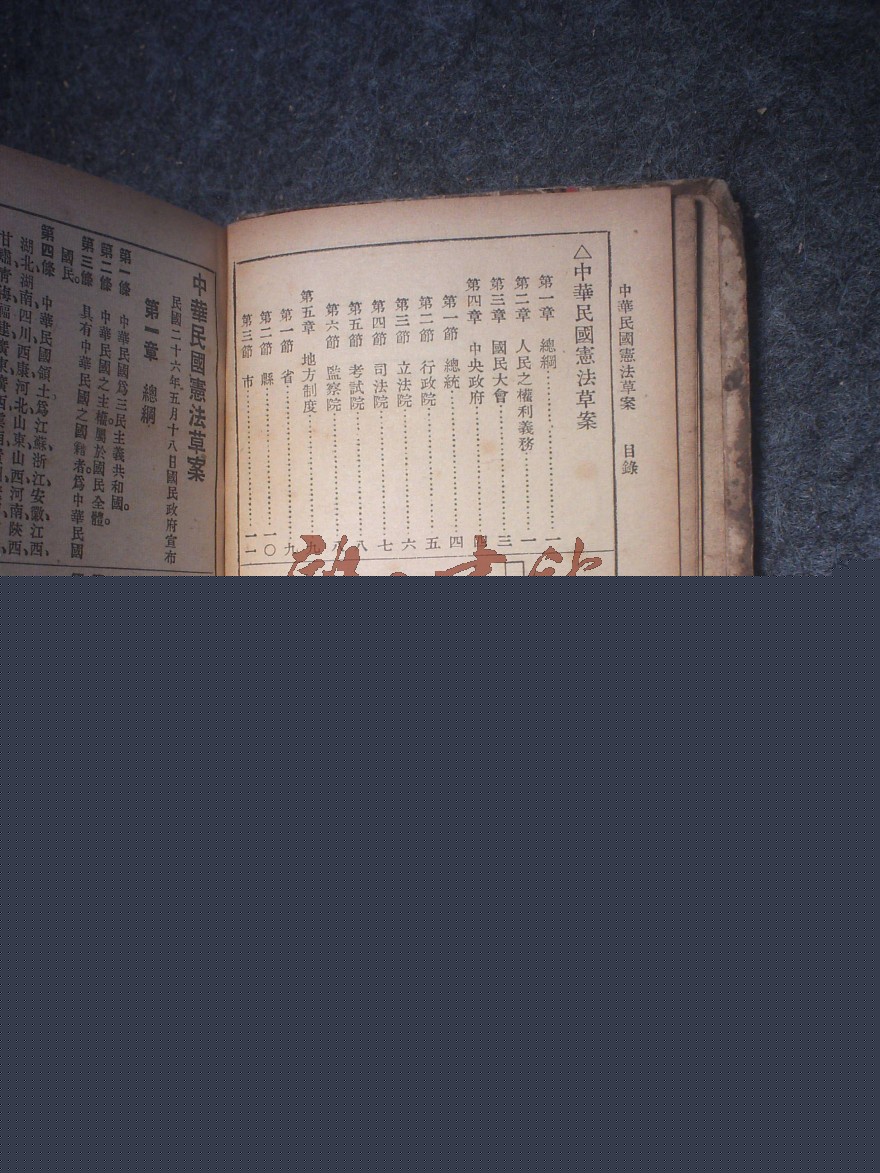 中華民國憲法草案 目錄
△中華民國憲法草案
第一章 總綱……一
第二章 人民之權利義務……一
第三章 國民大會……三
第四章 中央政府……四
第一節 總統……四
第二節 行政院……五
第三節 立法院……六
第四節 司法院……七
第五節 考試院……八
第六節 監察院……八
第五章 地方制度……九
第一節 省……九
第二節 縣……一〇
第三節 市……一一
中華民國憲法草案
民國二十六年五月十八日國民政府宣布
第一章 總綱
第一條 中華民國爲三民主義共和國。
第二條 中華民國之主權屬於國民全體。
第三條 具有中華民國之國籍者爲中華民國
國民。
第四條 中華民國領土爲江蘇、浙江、安徽、江西、
湖北、湖南、四川、西康、河北、山東、山西、河南、陝西、
甘肅、青海、福建、廣東、廣西